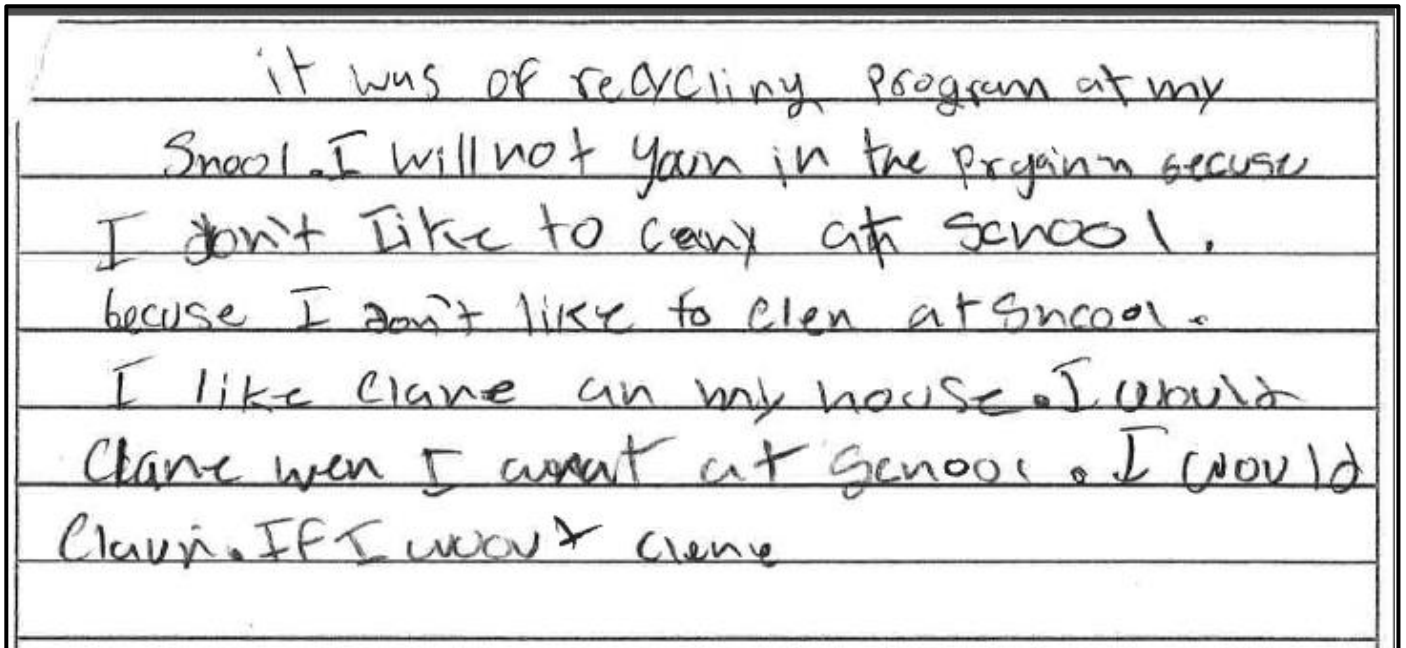 it wus of recycling program at my
Snool. I will not yoin in the prgainn becuse
I don't like to cany at school.
becuse I don't like to clen at Sncool.
I like Clane an my house. I would
Clane wen I at school. I would
Claun. If I wout clene